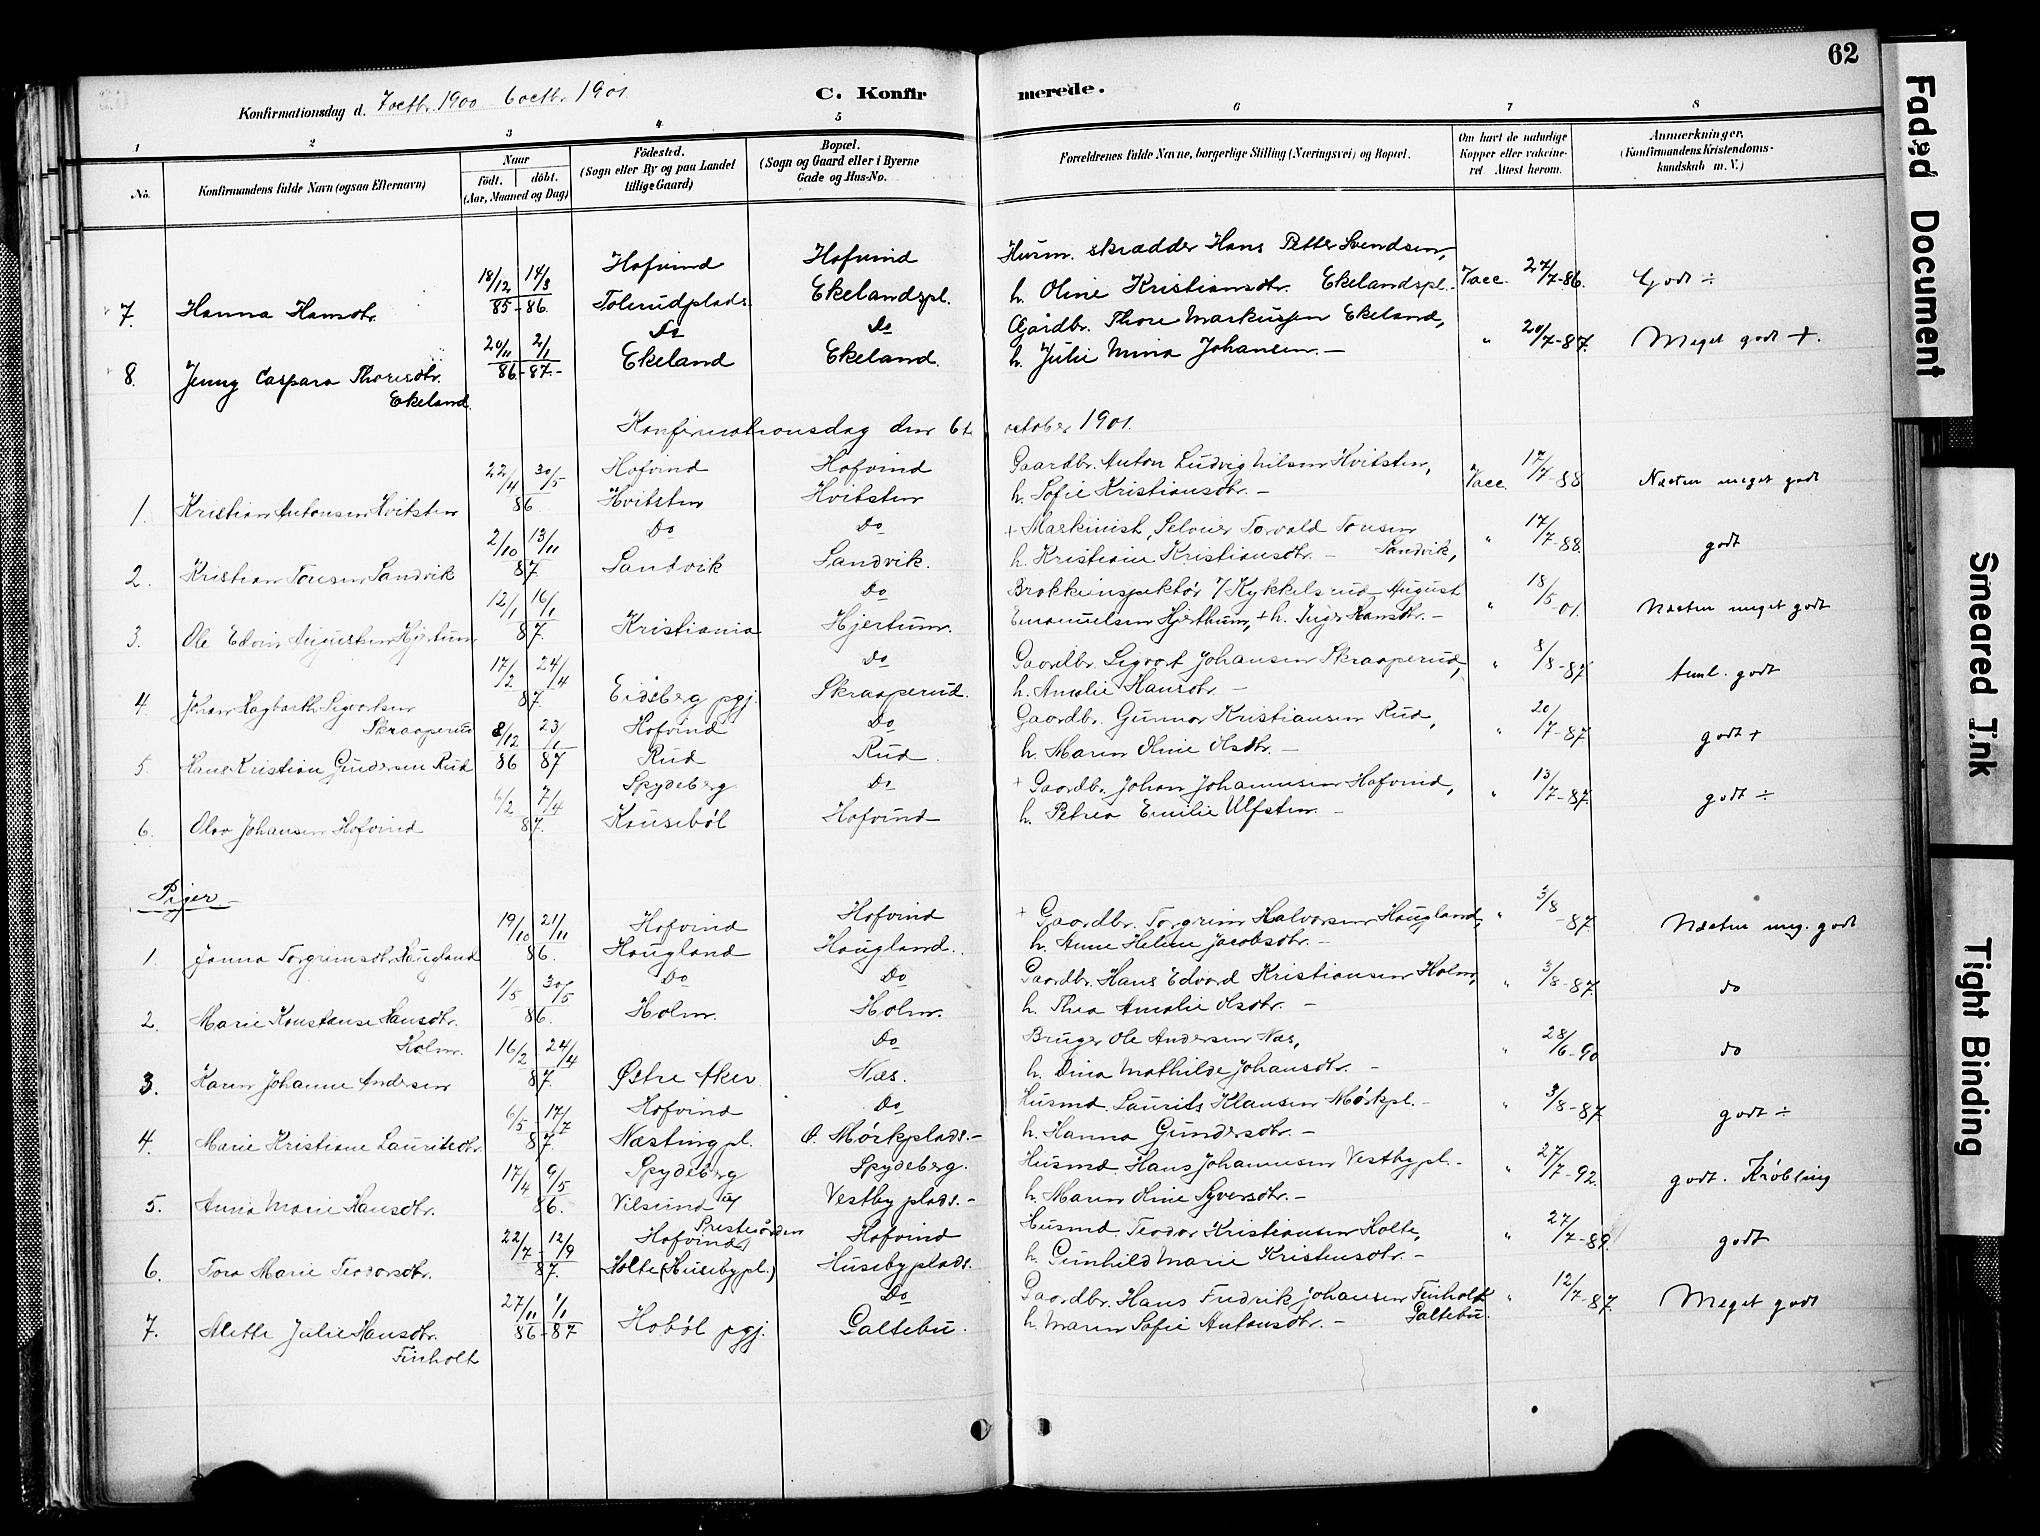 62
Konfirmationsdag d. 7 octbr. 1900. 6 octbr. 1901.
C. Konfirmerede.
1 2 3 4 5 6 7 8
No.
Konfirmandens fulde Navn (ogsaa Efternavn)
Naar
födt. döbt.
(Aar, Maaned og Dag)
Födested.
(Sogn eller By og paa Landet
tillige Gaard)
Bopæl.
(Sogn og Gaard eller i Byerne
Gade og Hus-No.
Forældrenes fulde Navne, borgerlige Stilling (Næringsvei) og Bopæl.
Om havt de naturlige
Kopper eller vakcine-
ret Attest herom.
Anmærkninger.
(Konfirmandens Kristendoms-
kundskab m. V.)
Hofvind Hofvind Husm. skrædder Hans Petter Svendsen,
7. Hanna Hansdtr. 18/12 85 - 14/3 86. Tolerudplads. Ekelandspl. h. Oline Kristiansdtr. Ekelandspl. Vacc. 27/7-86. Godt ÷
Do Do Gårdbr. Thore Markussen Ekeland,
8. Jenny Caspara Thoresdtr. 20/11 86 - 2/1 87.- Ekeland Ekeland. h. Julie Mina Johansen.— " 20/7-87. Meget godt +.
Ekeland.
Konfirmationsdag den 6te october 1901.
Hofvind Hofvind Gaardbr. Anton Ludvig Nilsen Hvitsten,
1. Kristian Antonsen Hvitsten 22/4 30/5 86 Hvitsten Hvitsten h. Sofie Kristiansdtr.— Vacc. 17/7-88 Næsten meget godt
Do Do + Maskinist, Selveier Torvald Tonsen
2. Kristian Tonsen Sandvik 2/10 13/11 87 Sandvik Sandvik. h. Kristiane Kristiansdtr.— Sandvik, " 17/7-88. godt
Do
3. Ole Edvin Augustsen Hjertum 12/1 16/1 87. Kristiania Hjertum. Emanuelsen Hjerthum, + h. Inger Hansdtr.— " 18/5-01. Næsten meget godt
Do Gaardbr. Sigvart Johansen Skraaperud,
4. Johan Hagbarth Sigvartsen 17/2 24/4 87. Eidsberg pgj. Skraaperud. h. Amalie Hansdtr.— " 8/8-87 Teml. godt
Skraaperud
Hofvind Do Gaardbr. Gunnar Kristiansen Rud,
5. Hans Kristian Gundersen Rud 8/12 86 23/1 87 Rud Rud. h. Maren Oline Olsdtr.— " 20/7-87 godt +
Spydeberg Do + Gaardbr. Johan Johannesen Hofvind,
6. Olav Johansen Hofvind 6/2 7/4 87. Hofvind h. Petrea Emilie Ulfsten.— " 13/7-87. godt ÷
Piger
Hofvind Hofvind + Gaardbr. Torgrim Halvorsen Haugland,
1. Janna Torgrimsdtr. Haugland 19/10 21/11 86. Haugland Haugland. h. Anne Helene Jacobsdtr.— " 3/8-87. Næsten meg. godt
Do Do Gaardbr. Hans Edvard Kristiansen Holm,
2. Marie Konstanse Hansdtr. 1/5 30/5 86. Holm. Holm. h. Thea Amalie Olsdtr.— " 3/8-87. do
Holm.
Do Bruger Ole Andersen Næs,
3. Karen Johanne Andersen 16/2 24/4 87. Østre Aker Næs. h. Dina Mathilde Johansdtr.— " 28/6-90 do
Hofvind Do Husmd. Laurits Klausen Mørkpl.—
4. Marie Kristiane Lauritsdtr. 6/5 17/7 87. Næstingpl. Ø. Mørkplads.— h. Hanna Gundersdtr.— " 3/8-87 godt ÷
Spydeberg Spydeberg. Husmd. Hans Johannesen Vestbypl.—
5. Anna Marie Hansdtr. 17/4 9/5 86. Vilsund Vestby plads.— h. Maren Oline Syversdtr.— " 27/7-92. godt.
Hofvind Hofvind Husmd. Teodor Kristiansen Holte,
6. Tora Marie Teodorsdtr. 22/7 12/9 87. Holte (Husebypl.) Husebyplads. h. Gunhild Marie Kristensdtr.— " 27/7-89. godt
Do Gaardbr. Hans Fredrik Johansen Finholt
7. Mette Julie Hansdtr. 27/11 86 - 1/1 87 Hobøl pgj. Galtebu. h. Maren Sofie Antonsdtr.— Galtebu. " 12/7-87. Meget godt
Finholt
Faded Document
Smeared Ink
Tight Binding